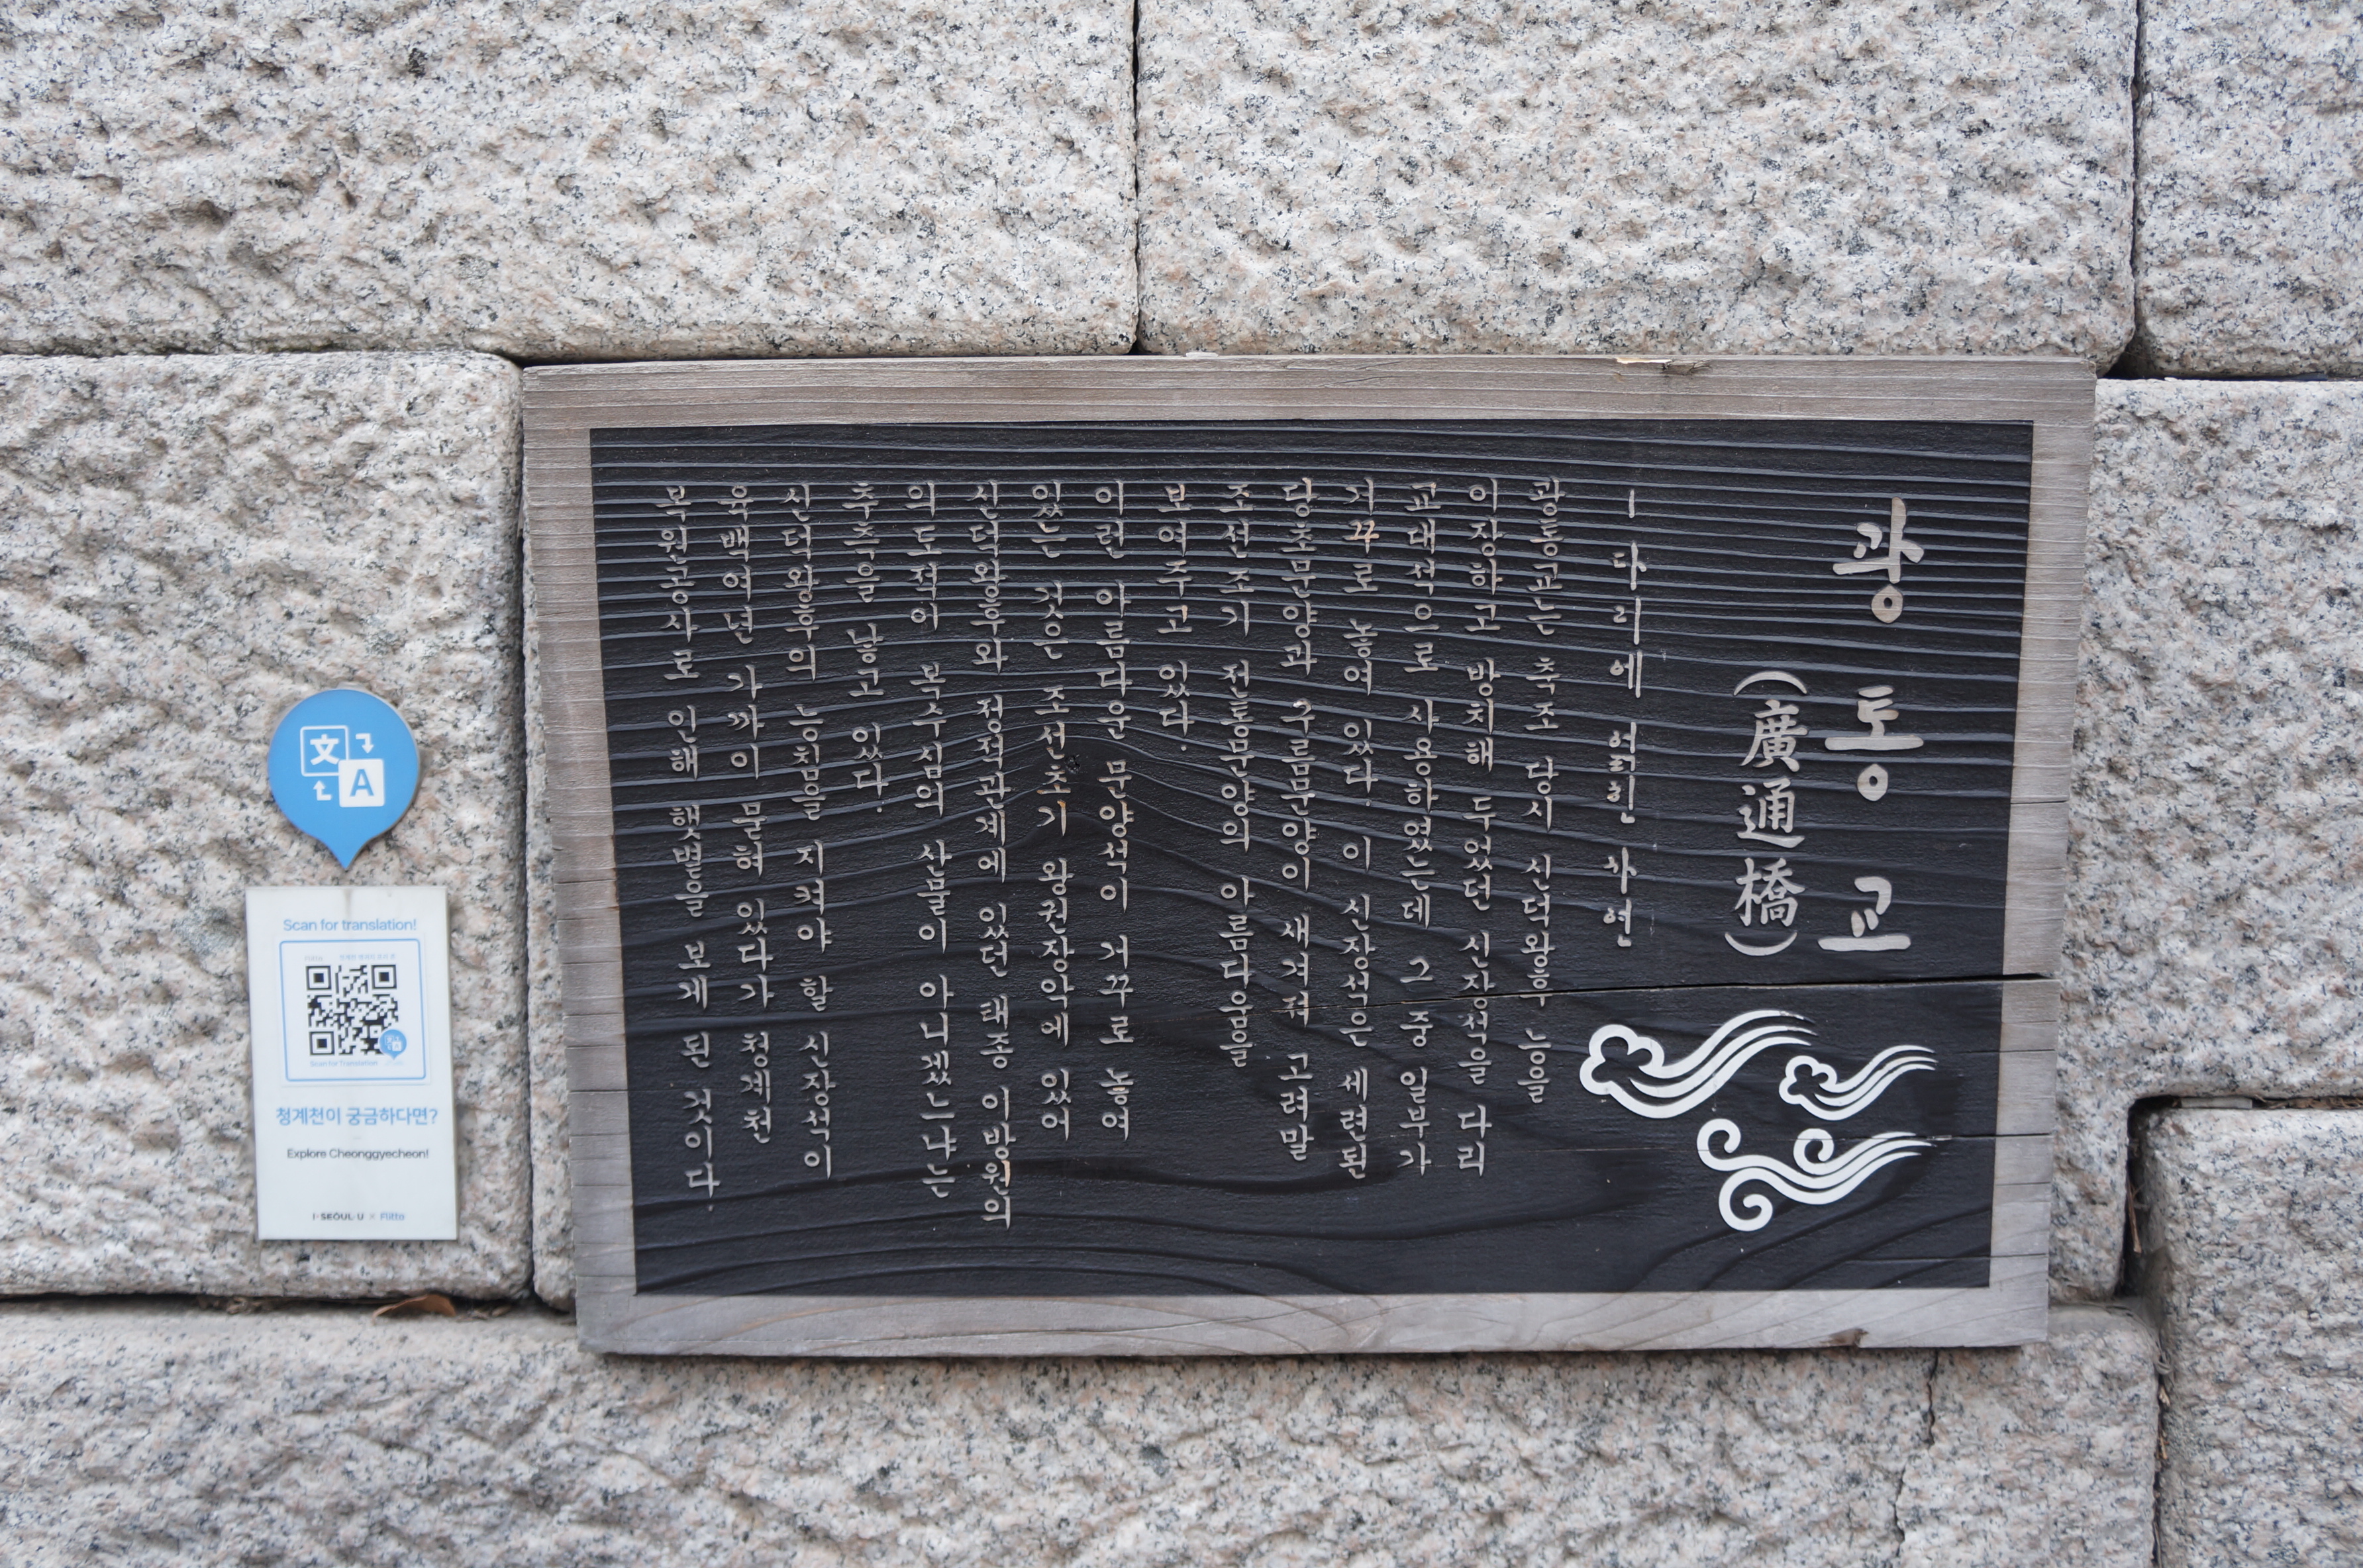 광통교
(廣通橋)
- 다리에 얽힌 사연
광통교는 축조 당시 신덕왕후 능을
이장하고 방치해 두었던 신장석을 다리
교대석으로 사용하였는데 그 중 일부가
거꾸로 놓여 있다. 이 신장석은 세련된
당초문양과 구름문양이 새겨져 고려말
조선초기 전통문양의 아름다움을
보여주고 있다.
이런 아름다운 문양석이 거꾸로 놓여
있는 것은 조선초기 왕권장악에 있어
신덕왕후와 정적관계에 있던 태종 이방원의
의도적이 복수심의 산물이 아니겠느냐는
추측을 낳고 있다.
신덕왕후의 능침을 지켜야 할 신장석이
육백여년 가까이 묻혀 있다가 청계천
복원공사로 인해 햇볕을 보게 된 것이다.
文
A
Scan for translation!
Scan for Translation
청계천이 궁금하다면?
Explore Cheonggyecheon!
I·SEOUL·U × Flitto